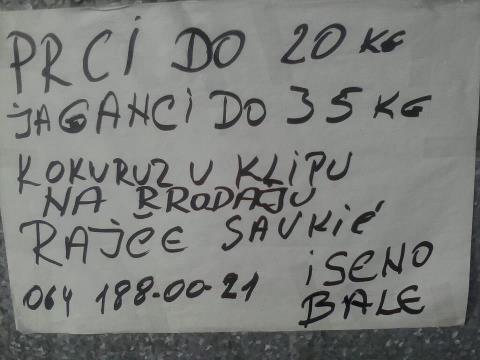 PRCI DO 20 KG
JAGANCI DO 35 KG
KOKURUZ U KLIPU
NA PRODAJU
RAJČE SAVKIĆ
064 188-00-21
I SENO
BALE